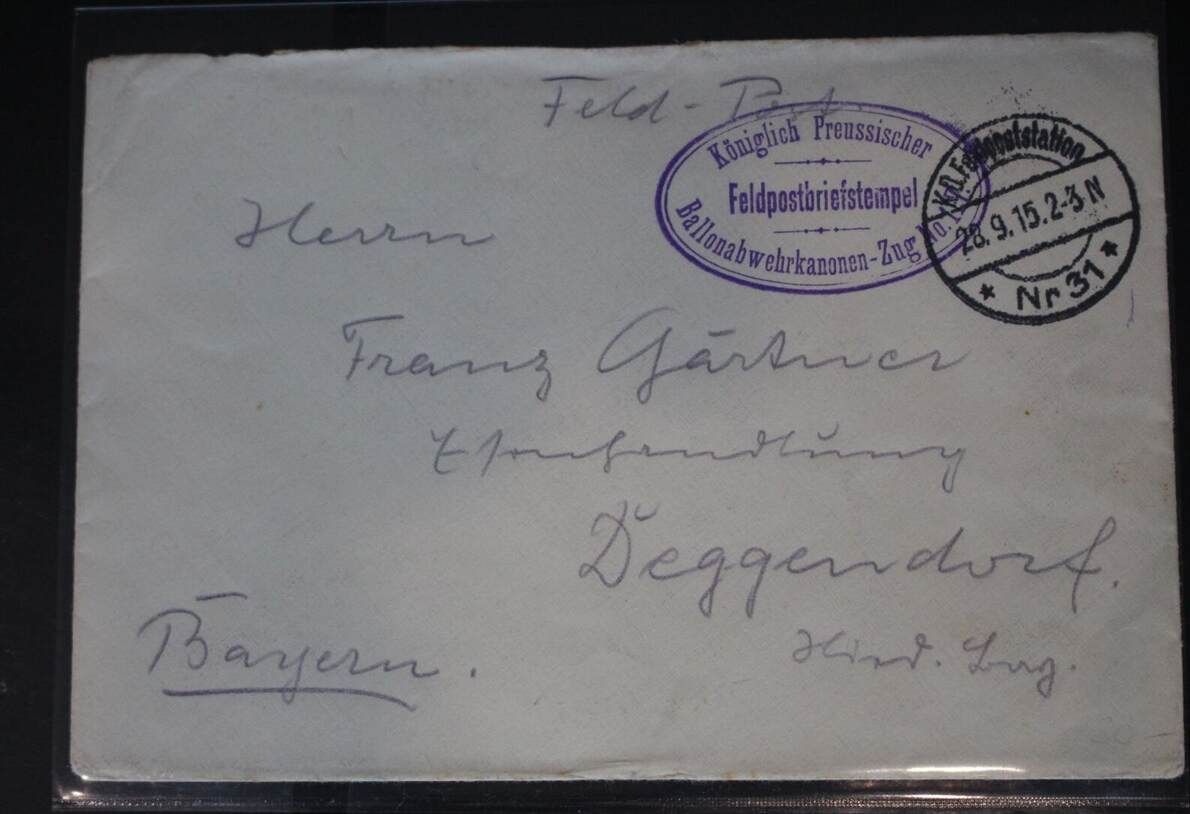 Feld-Post.
Königlich Preussischer
Feldpostbriefstempel
Ballonabwehrkanonen-Zug No.
K.D. Feldpoststation
28.9.15.2-3N
* Nr 31 *
Herrn
Franz Gärtner
Eisenhandlung
Deggendorf.
Nied. Bay.
Bayern.